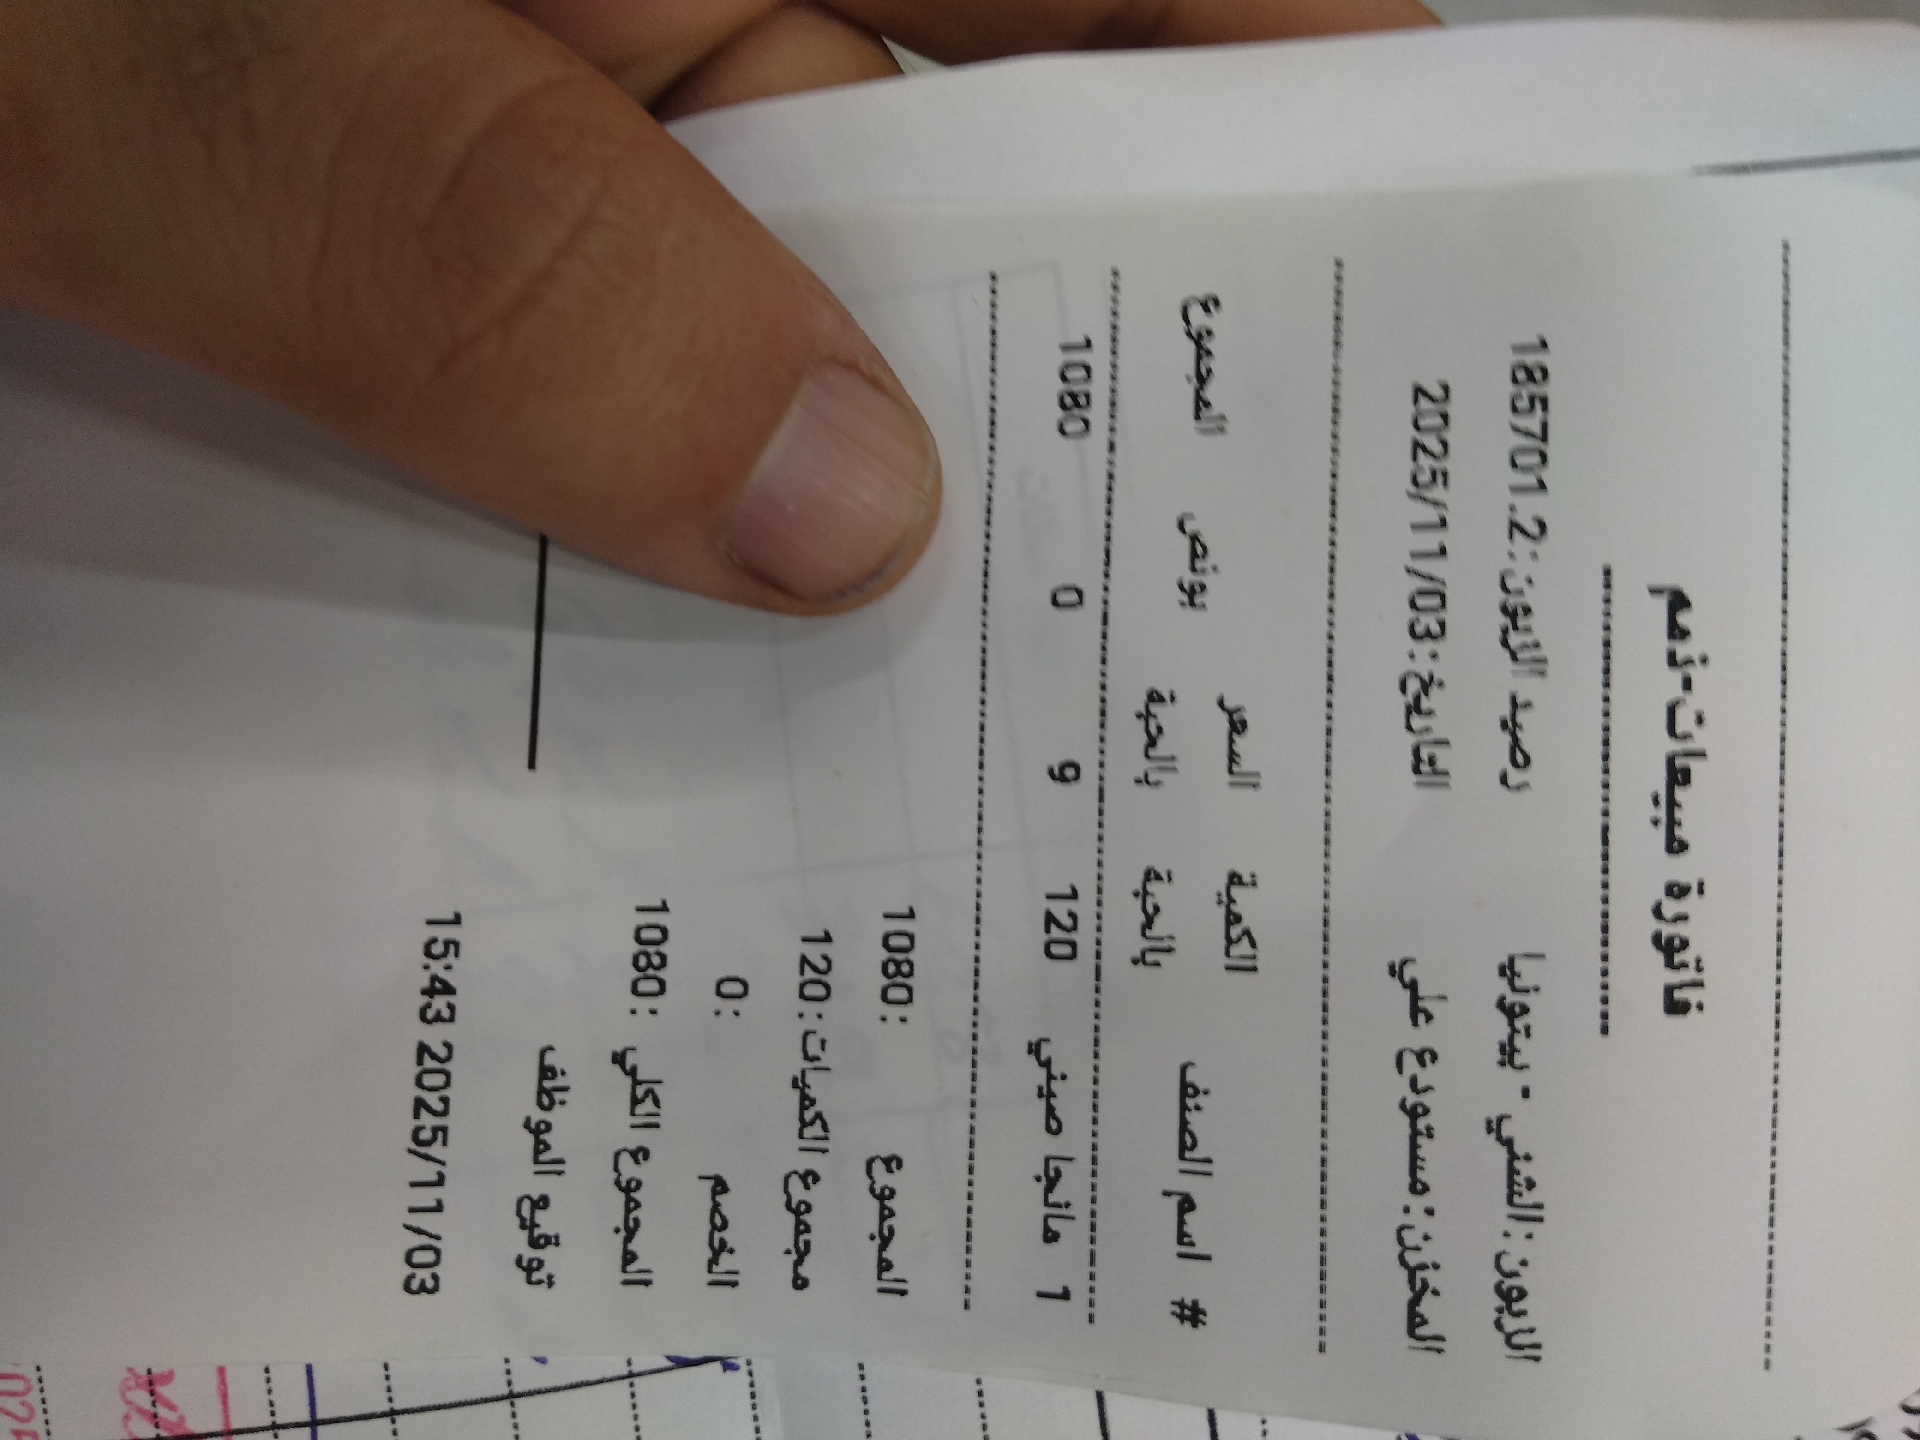 فاتورة مبيعات-ذمم
الزبون:الشني - بيتونيا رصيد الزبون:185701.2
المخزن:مستودع علي التاريخ:2025/11/03
# اسم الصنف الكمية بالحبة السعر بالحبة بونص المجموع
1 مانجا صيني 120 9 0 1080
المجموع :1080
مجموع الكميات:120
الخصم :0
المجموع الكلي :1080
توقيع الموظف
15:43 2025/11/03